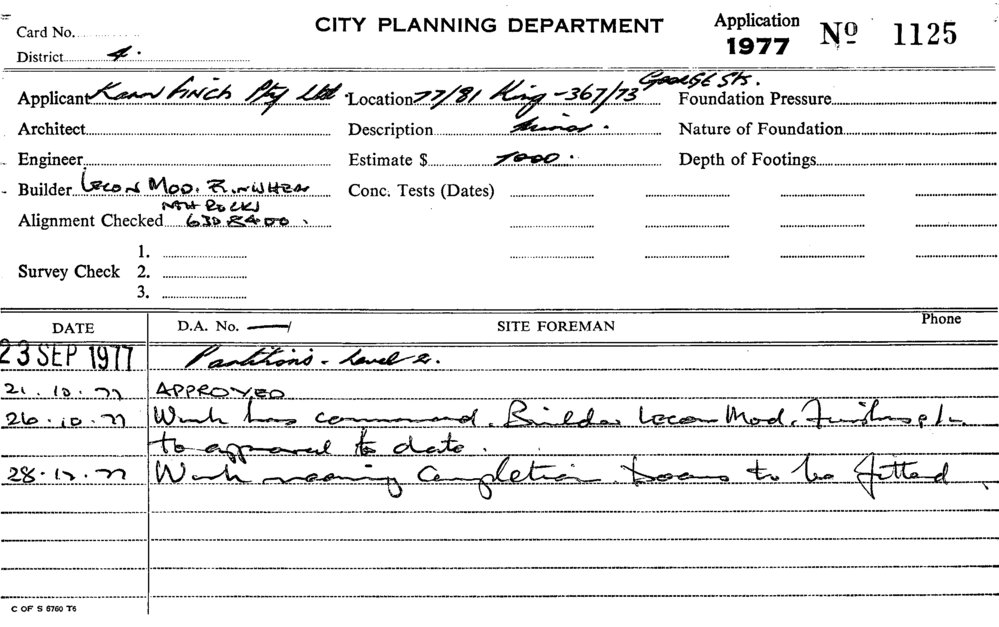 CITY PLANNING DEPARTMENT
Application 1977 No 1125
Card No.
District 4.
Applicant Kann Finch Pty Ltd. Location 77/81 King - 367/73 George Sts. Foundation Pressure
Architect Description Minor. Nature of Foundation
Engineer Estimate $ 7000. Depth of Footings
Builder Lecon Mod. Conc. Tests (Dates)
NTH ROCKS
Alignment Checked 630 8400.
Survey Check 1.
2.
3.
DATE D.A. No. SITE FOREMAN Phone
23 SEP 1977 Partitions - Level 2.
21.10.77 APPROVED
26.10.77 Work has commenced. Builder Lecon Mod.
to approval to date.
28.12.77 Work nearing Completion. Doors to be fitted
C OF S 6760 T6